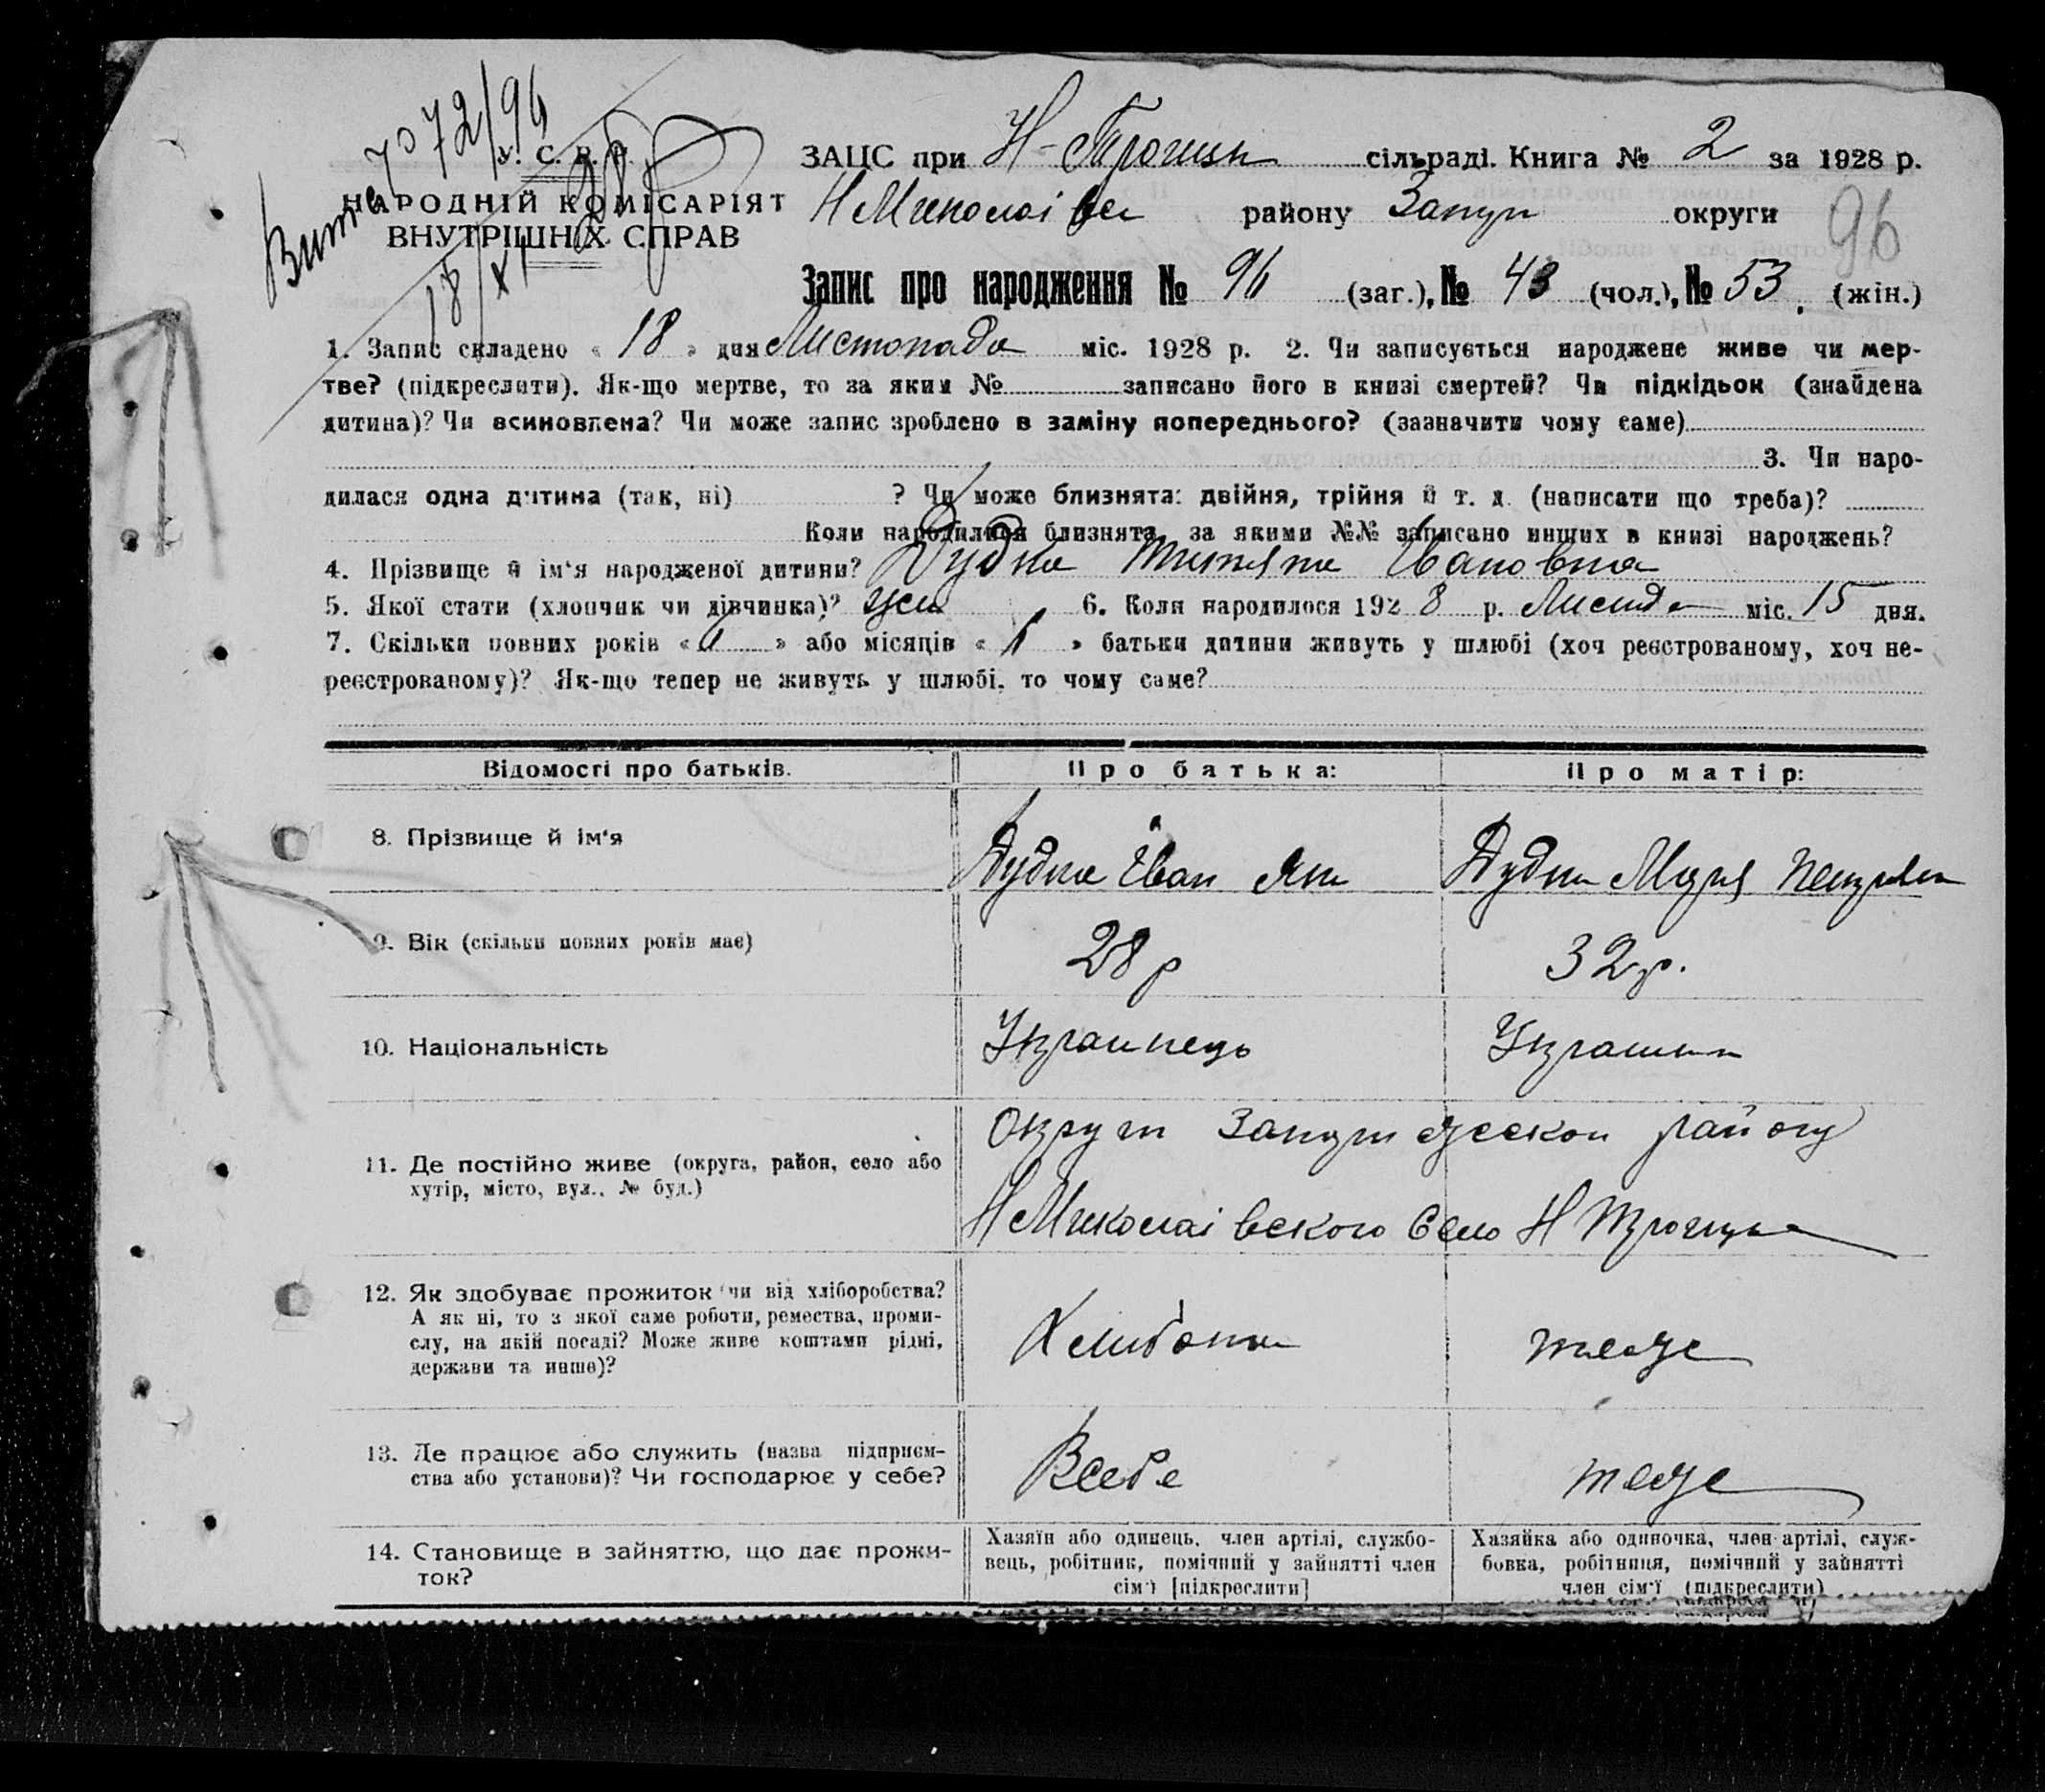 У. С. Р. Р.
НАРОДНІЙ КОМІСАРІЯТ
ВНУТРІШНІХ СПРАВ
72/96
18/XI 28
ЗАЦС при Н-Троицьк сільраді. Книга № 2 за 1928 р.
НМиколаівсь району Запор округи
96
Запис про народження № 96 (заг.), № 43 (чол.), № 53. (жін.)
1. Запис складено « 18 » дня Листопада міс. 1928 р. 2. Чи записується народжене живе чи мер-
тве? (підкреслити). Як-що мертве, то за яким № записано його в книзі смертей? Чи підкідьок (знайдена
дитина)? Чи всиновлена? Чи може запис зроблено в заміну попереднього? (зазначити чому саме)
3. Чи наро-
дилася одна дитина (так, ні) ? Чи може близнята: двійня, трійня й т. д. (написати що треба)?
Коли народилися близнята, за якими №№ записано инших в книзі народжень?
4. Прізвище й ім'я народженої дитини? Дудка Татяна Івановна
5. Якої стати (хлопчик чи дівчинка)? жен 6. Коли народилося 192 8 р. Листпда міс. 15 дня.
7. Скільки повних років « » або місяців « » батьки дитини живуть у шлюбі (хоч реєстрованому, хоч не-
реєстрованому)? Як-що тепер не живуть у шлюбі, то чому саме?
Відомості про батьків. Про батька: Про матір:
8. Прізвище й ім'я Дудка Іван Дудка Мария Петровна
9. Вік (скільки повних років має) 28 р 32 р.
10. Національність Украинець Украинка
11. Де постійно живе (округа, район, село або
хутір, місто, вул., № буд.)
Округи району
НМиколаівского Село НТроицьке
12. Як здобуває прожиток чи від хліборобства?
А як ні, то з якої саме роботи, ремества, проми-
слу, на якій посаді? Може живе коштами рідні,
держави та инше)?
тоже
13. Де працює або служить (назва підприєм-
ства або установи)? Чи господарює у себе?
Всебе тоже
14. Становище в зайняттю, що дає прожи-
ток?
Хазяїн або одинець, член артілі, службо-
вець, робітник, помічний у зайнятті член
сім'ї [підкреслити]
Хазяйка або одиночка, член артілі, служ-
бовка, робітниця, помічний у зайнятті
член сім'ї (підкреслити)